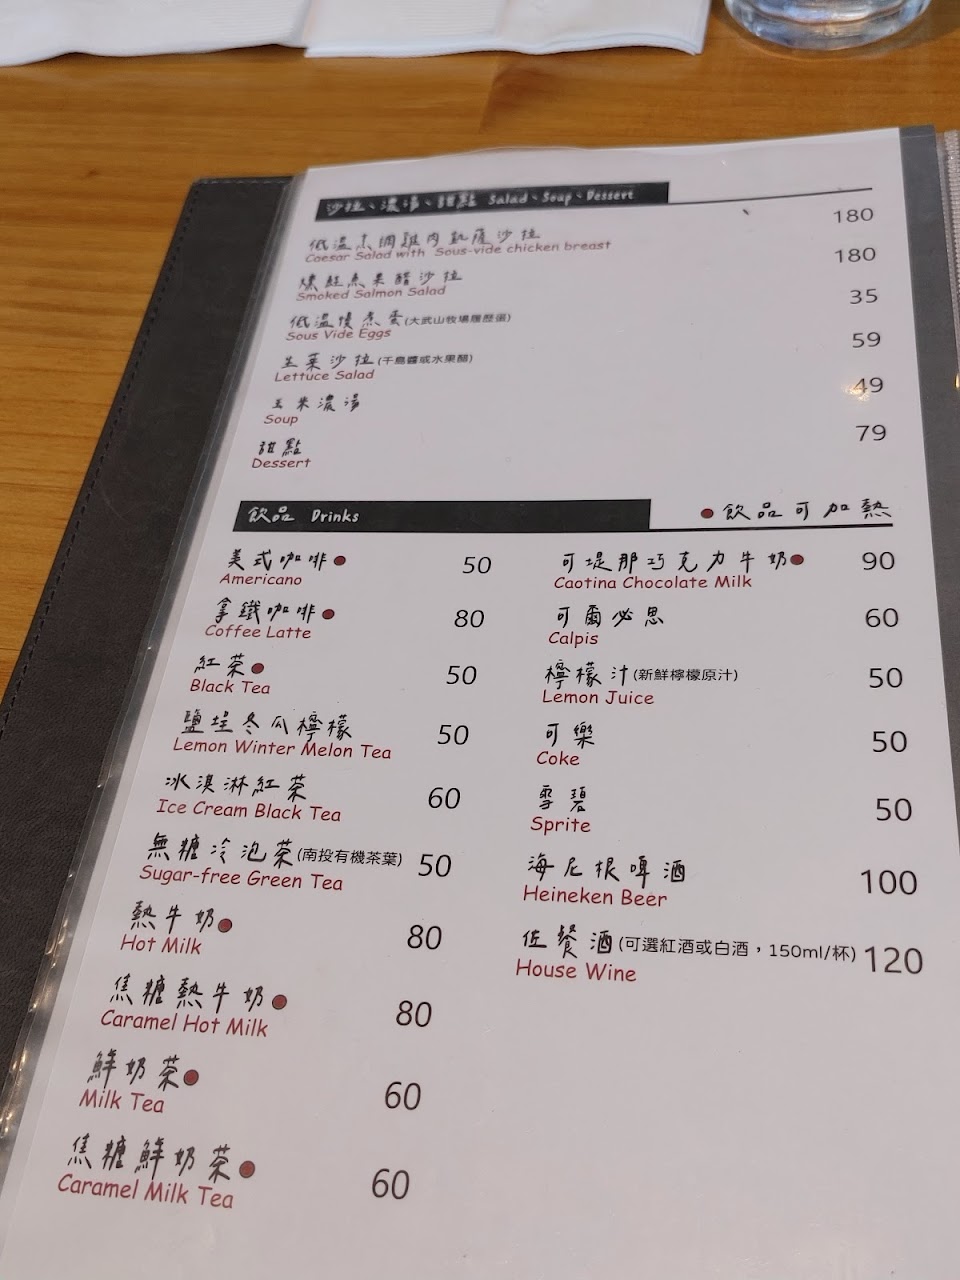 沙拉、濃湯、甜點 Salad、Soup、Dessert
低溫烹調雞肉凱薩沙拉 180
Caesar Salad with Sous-vide chicken breast
燻鮭魚果醋沙拉 180
Smoked Salmon Salad
低溫慢煮蛋(大武山牧場履歷蛋) 35
Sous Vide Eggs
生菜沙拉(千島醬或水果醋) 59
Lettuce Salad
玉米濃湯 49
Soup
甜點 79
Dessert
飲品 Drinks
●飲品可加熱
美式咖啡● 50
Americano
拿鐵咖啡● 80
Coffee Latte
紅茶● 50
Black Tea
鹽埕冬瓜檸檬 50
Lemon Winter Melon Tea
冰淇淋紅茶 60
Ice Cream Black Tea
無糖冷泡茶(南投有機茶葉) 50
Sugar-free Green Tea
熱牛奶● 80
Hot Milk
焦糖熱牛奶● 80
Caramel Hot Milk
鮮奶茶● 60
Milk Tea
焦糖鮮奶茶● 60
Caramel Milk Tea
可堤那巧克力牛奶● 90
Caotina Chocolate Milk
可爾必思 60
Calpis
檸檬汁(新鮮檸檬原汁) 50
Lemon Juice
可樂 50
Coke
雪碧 50
Sprite
海尼根啤酒 100
Heineken Beer
佐餐酒(可選紅酒或白酒，150ml/杯) 120
House Wine